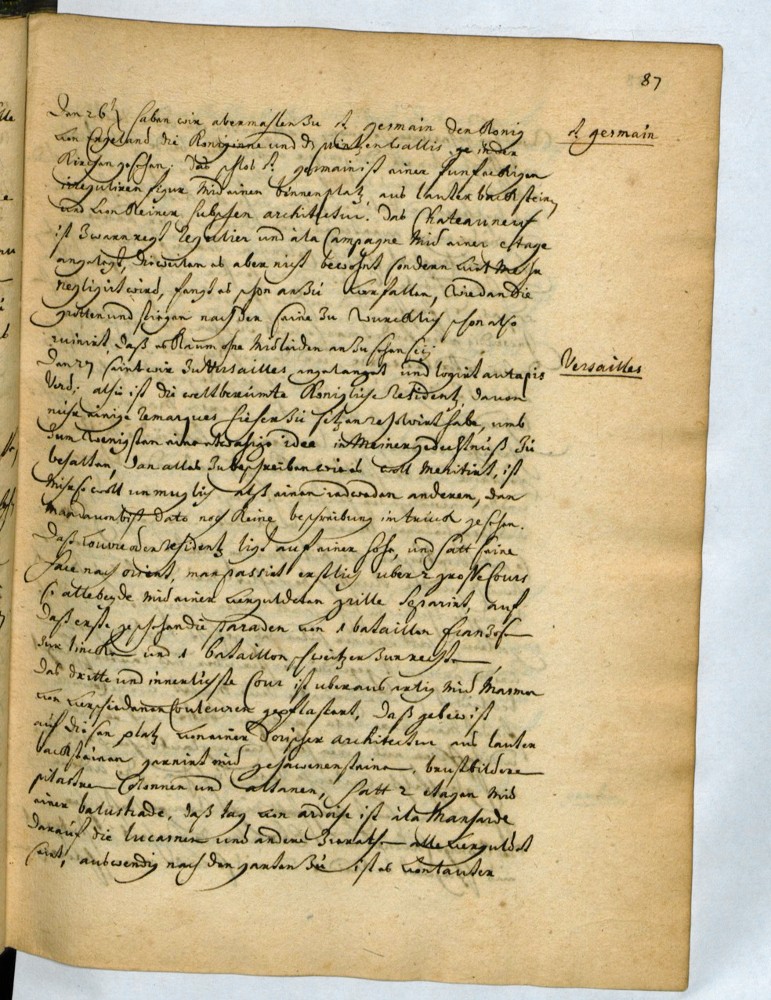 87
Den 26t haben wir abermahlen zu St germain den König
St germain
von Engeland die Königinne und dn printzen Wallis ge in der
Kirchen gesehen. Das schlos St germain ist einer funfeckigen
irregulieren figur mid einen binnenplatz, aus lauter backstein
und von Keiner hubschen architectur. das Chateauneuf
ist zwarn regulier und à la Campagne mid einer etage
angelegt, dieweilen es aber nicht bewohnt sondern
negligirt wird, fangt es schon an zu verfallen, wie dan die
grotten und stiegen nach der Saine zu wurcklich schon also
ruinirt, daß es kaum ohne midleiden anzusehen sei,
Den 27 seint wir zu Versailles angelanget und logirt au tapis
Versailles
Verd; alhie ist die weltberümte Konigliche Residentz davon
nuhr einige remarques hieher zu setzen resolwirt habe, umb
zum wenigsten eine idee in Meiner gedechtnuß zu
behalten, dan alles zu beschreiben wie es woll meritirt, ist
Mihr so woll unmuglich alß einen iedweden anderen, dan
man davon bist dato noch Keine beschreibung in truck gesehen.
Daß Louvre oder residentz ligt auf einer hohe, und hatt seine
face nach orient, man passirt erstlich uber 2 grosse Cours
so alle beyde mid einer verguldeten grille separirt, auf
daß erste geschehen die paraden von 1 bataillon franzosen
zur lincken und 1 bataillon schweitzer zur rechten
Das dritte und innerlichste Cour ist uberaus artig mid Marmor
von verschiedenen Couleuren gepflastert, daß gebeu ist
auf diesen platz von einer Dorischer architectur aus lauter
backsteinen garnirt mid gehawenen steinen, brustbildern
pilastren Colonnen und altanen, hatt 2 etagen mid
einer balustrade, daß tag von ardoise ist à la Mansarde
darauf die lucarnen und andere Zierathen alle verguldet
seint, auswendig nach den garten zu ist es von lauter